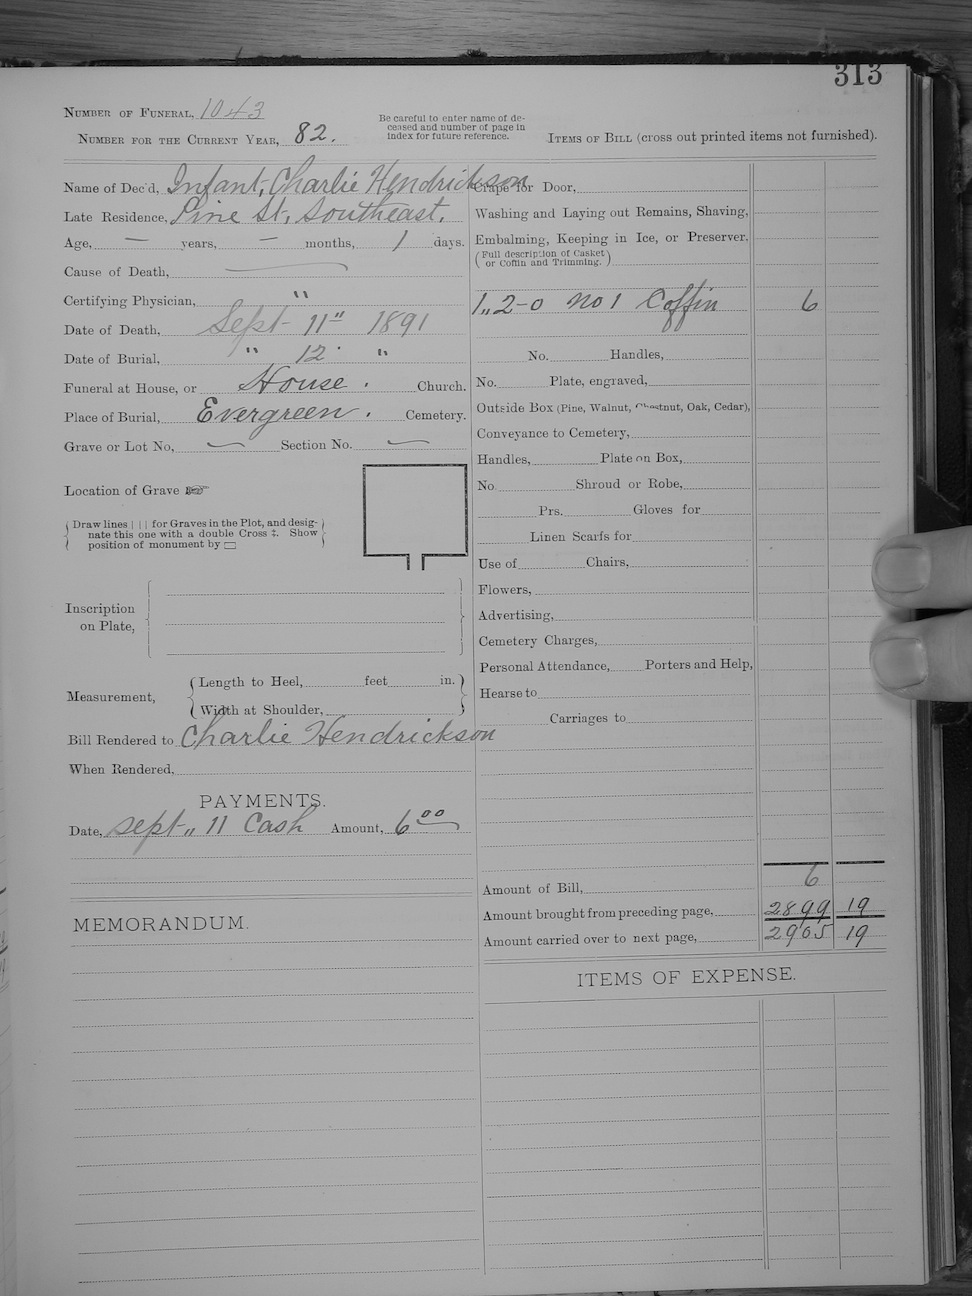 313
NUMBER OF FUNERAL, 1043
NUMBER FOR THE CURRENT YEAR, 82.
Be careful to enter name of de-
ceased and number of page in
index for future reference.
ITEMS OF BILL (cross out printed items not furnished).
Name of Dec'd, Infant, Charlie Hendrickson
Late Residence, Pine St, Southeast.
Age, — years, — months, 1 days.
Cause of Death, —
Certifying Physician, "
Date of Death, Sept 11" 1891
Date of Burial, " 12 "
Funeral at House, or House. Church.
Place of Burial, Evergreen. Cemetery.
Grave or Lot No, — Section No. —
Location of Grave ☞
Draw lines | | | for Graves in the Plot, and desig-
nate this one with a double Cross ‡. Show
position of monument by ▭
Inscription
on Plate,
Measurement,
Length to Heel, feet in.
Width at Shoulder,
Bill Rendered to Charlie Hendrickson
When Rendered,
PAYMENTS.
Date, Sept„ 11 Cash Amount, 6 00
MEMORANDUM.
Crape for Door,
Washing and Laying out Remains, Shaving,
Embalming, Keeping in Ice, or Preserver,
(Full description of Casket
or Coffin and Trimming.)
1„ 2-0 no 1 Coffin 6
No. Handles,
No. Plate, engraved,
Outside Box (Pine, Walnut, Chestnut, Oak, Cedar),
Conveyance to Cemetery,
Handles, Plate on Box,
No. Shroud or Robe,
Prs. Gloves for
Linen Scarfs for
Use of Chairs,
Flowers,
Advertising,
Cemetery Charges,
Personal Attendance, Porters and Help,
Hearse to
Carriages to
Amount of Bill, 6
Amount brought from preceding page, 2899 19
Amount carried over to next page, 2905 19
ITEMS OF EXPENSE.